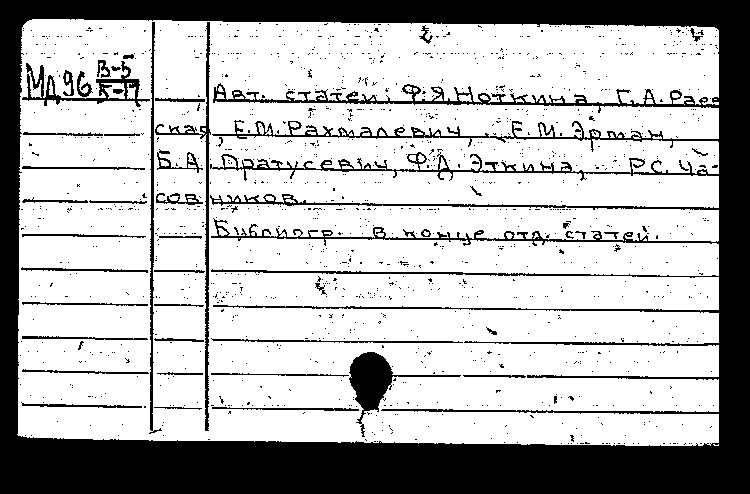 2.
МД96 В-5
5-17
Авт. статей: Ф.Я.Ноткина, Г.А.Раев
ская, Е.М.Рахмалевич, Е.М.Эрман,
Б.А.Пратусевич, Ф.Д.Эткина, Р.С.Ча-
совников.
Библиогр. в конце отд. статей.